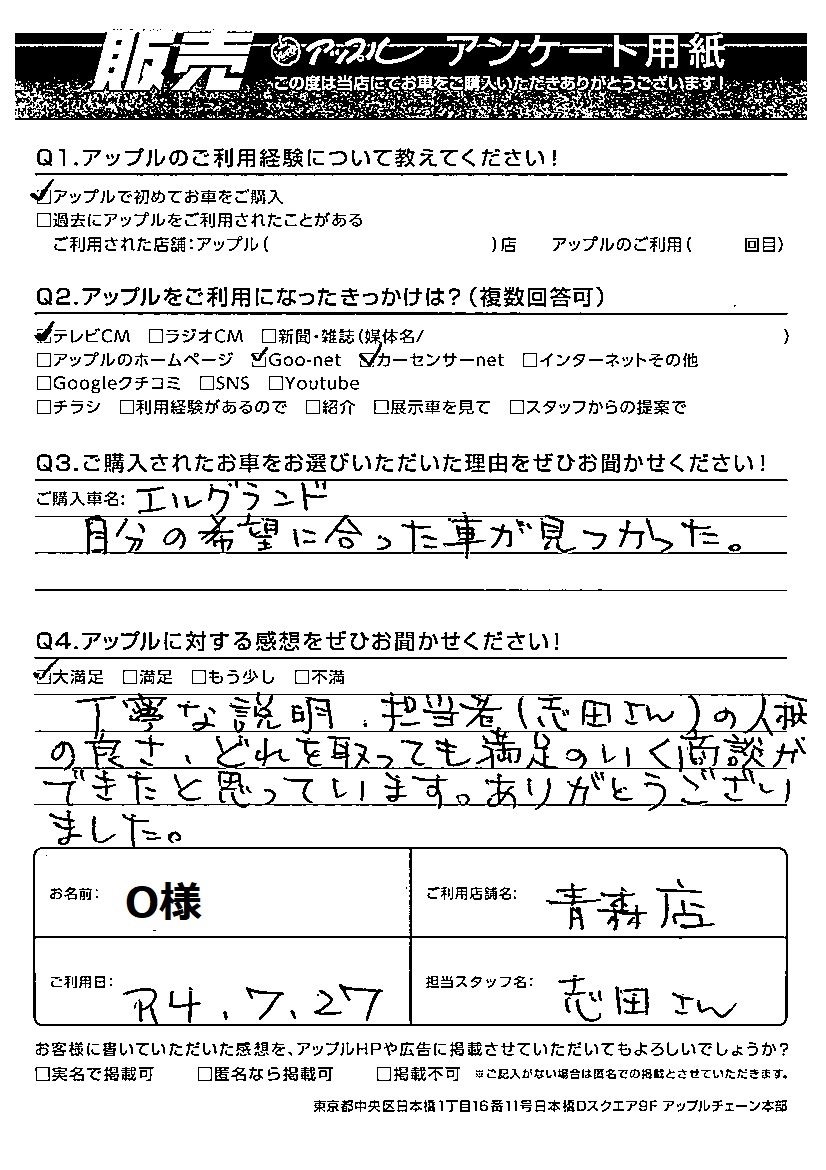 販売 アップル アンケート用紙
この度は当店にてお車をご購入いただきありがとうございます!
Q1.アップルのご利用経験について教えてください!
☑アップルで初めてお車をご購入
□過去にアップルをご利用されたことがある
ご利用された店舗:アップル( )店 アップルのご利用( 回目)
Q2.アップルをご利用になったきっかけは?(複数回答可)
☑テレビCM □ラジオCM □新聞・雑誌(媒体名/ )
□アップルのホームページ ☑Goo-net ☑カーセンサーnet □インターネットその他
□Googleクチコミ □SNS □Youtube
□チラシ □利用経験があるので □紹介 □展示車を見て □スタッフからの提案で
Q3.ご購入されたお車をお選びいただいた理由をぜひお聞かせください!
ご購入車名: エルグランド
自分の希望に合った車が見つかった。
Q4.アップルに対する感想をぜひお聞かせください!
☑大満足 □満足 □もう少し □不満
丁寧な説明、担当者(志田さん)の人柄
の良さ、どれを取っても満足のいく商談が
できたと思っています。ありがとうござい
ました。
お名前: O様 ご利用店舗名: 青森店
ご利用日: R4.7.27 担当スタッフ名: 志田さん
お客様に書いていただいた感想を、アップルHPや広告に掲載させていただいてもよろしいでしょうか?
□実名で掲載可 □匿名なら掲載可 □掲載不可 ※ご記入がない場合は匿名での掲載とさせていただきます。
東京都中央区日本橋1丁目16番11号日本橋Dスクエア9F アップルチェーン本部